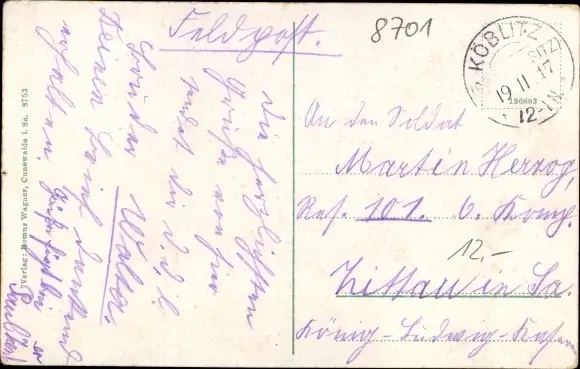 Feldpost.
8701
KÖBLITZ
19 11 17
12-1N
196893
Die herzlichsten
Grüße von hier
sendet dir d. l.
Bruder Walter.
Deinen Brief dankend
erhalten.
An den Soldat
Martin Herzog,
Res. 101. 6. Komp.
12,-
Zittau in Sa.
König-Ludwig-Kasern
Verlag: Benno Wagner, Cunewalde i. Sa. 8753